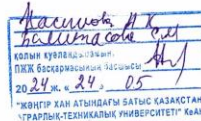 Халинова А К
қолын куәландырамын.
ПЖЖ басқармасының басшысы
2024 ж. « 24 » 05
"ЖӘҢГІР ХАН АТЫНДАҒЫ БАТЫС ҚАЗАҚСТАН
АГРАРЛЫҚ-ТЕХНИКАЛЫҚ УНИВЕРСИТЕТІ" КеАҚ